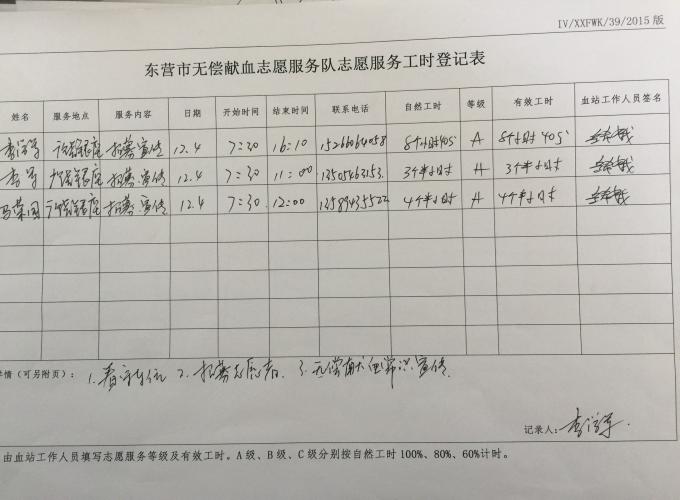 IV/XXFWK/39/2015 版
东营市无偿献血志愿服务队志愿服务工时登记表
姓名 服务地点 服务内容 日期 开始时间 结束时间 联系电话 自然工时 等级 有效工时 血站工作人员签名
招募宣传 12.4 7:30 16:10 15266064058 8个小时40分 A 8个小时40分
招募.宣传 12.4 7:30 11:00 3个半小时 A 3个半小时
招募.宣传 12.4 7:30 12:00 13589435522 4个半小时 A 4个半小时
详情(可另附页): 1. 2. 招募志愿者. 3. 无偿献血常识宣传.
记录人:
由血站工作人员填写志愿服务等级及有效工时。A 级、B 级、C 级分别按自然工时 100%、80%、60%计时。